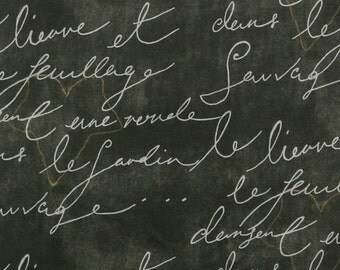 lierre et dans le
le feuillage Sauvag
sent une ronde
ns le jardin le lierre
uvage... le feuill
dansent un